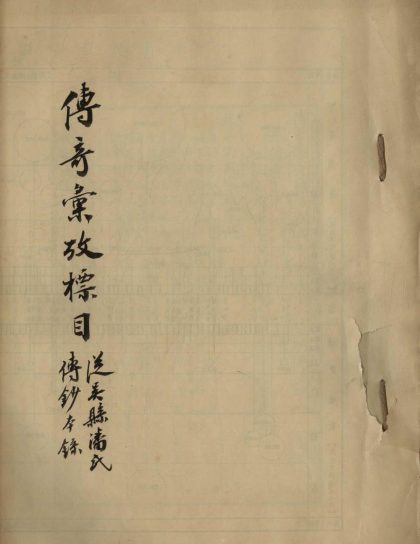 傳奇彙攷標目
從吳縣潘氏
傳鈔本錄